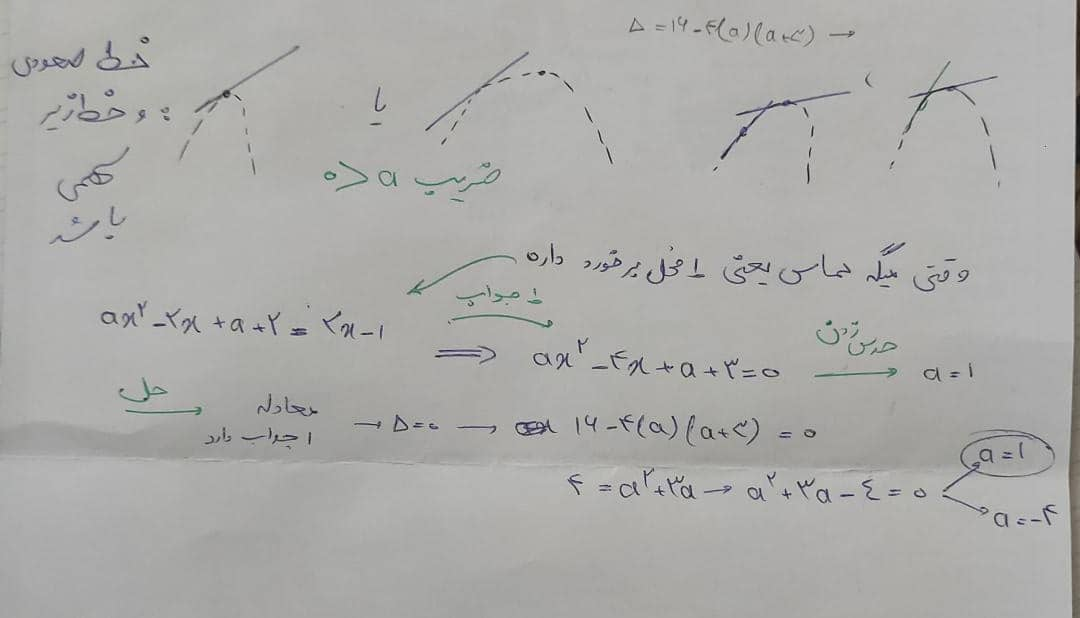 Δ = ۱۶ - ۴(a)(a+۳) →
خط صعودی
و خط زیر :
سهمی
باشد
یا
ضریب a < ۰
وقتی میگه مماس یعنی ۱ محل برخورد داره
۱ جواب
ax² - ۲x + a + ۲ = ۲x - ۱
⇒ ax² - ۴x + a + ۳ = ۰ حدس زدن → a = ۱
حل → معادله ۱ جواب دارد → Δ = ۰ → ۱۶ - ۴(a)(a+۳) = ۰
۴ = a² + ۳a → a² + ۳a - ٤ = ۰
a = ۱
a = -۴